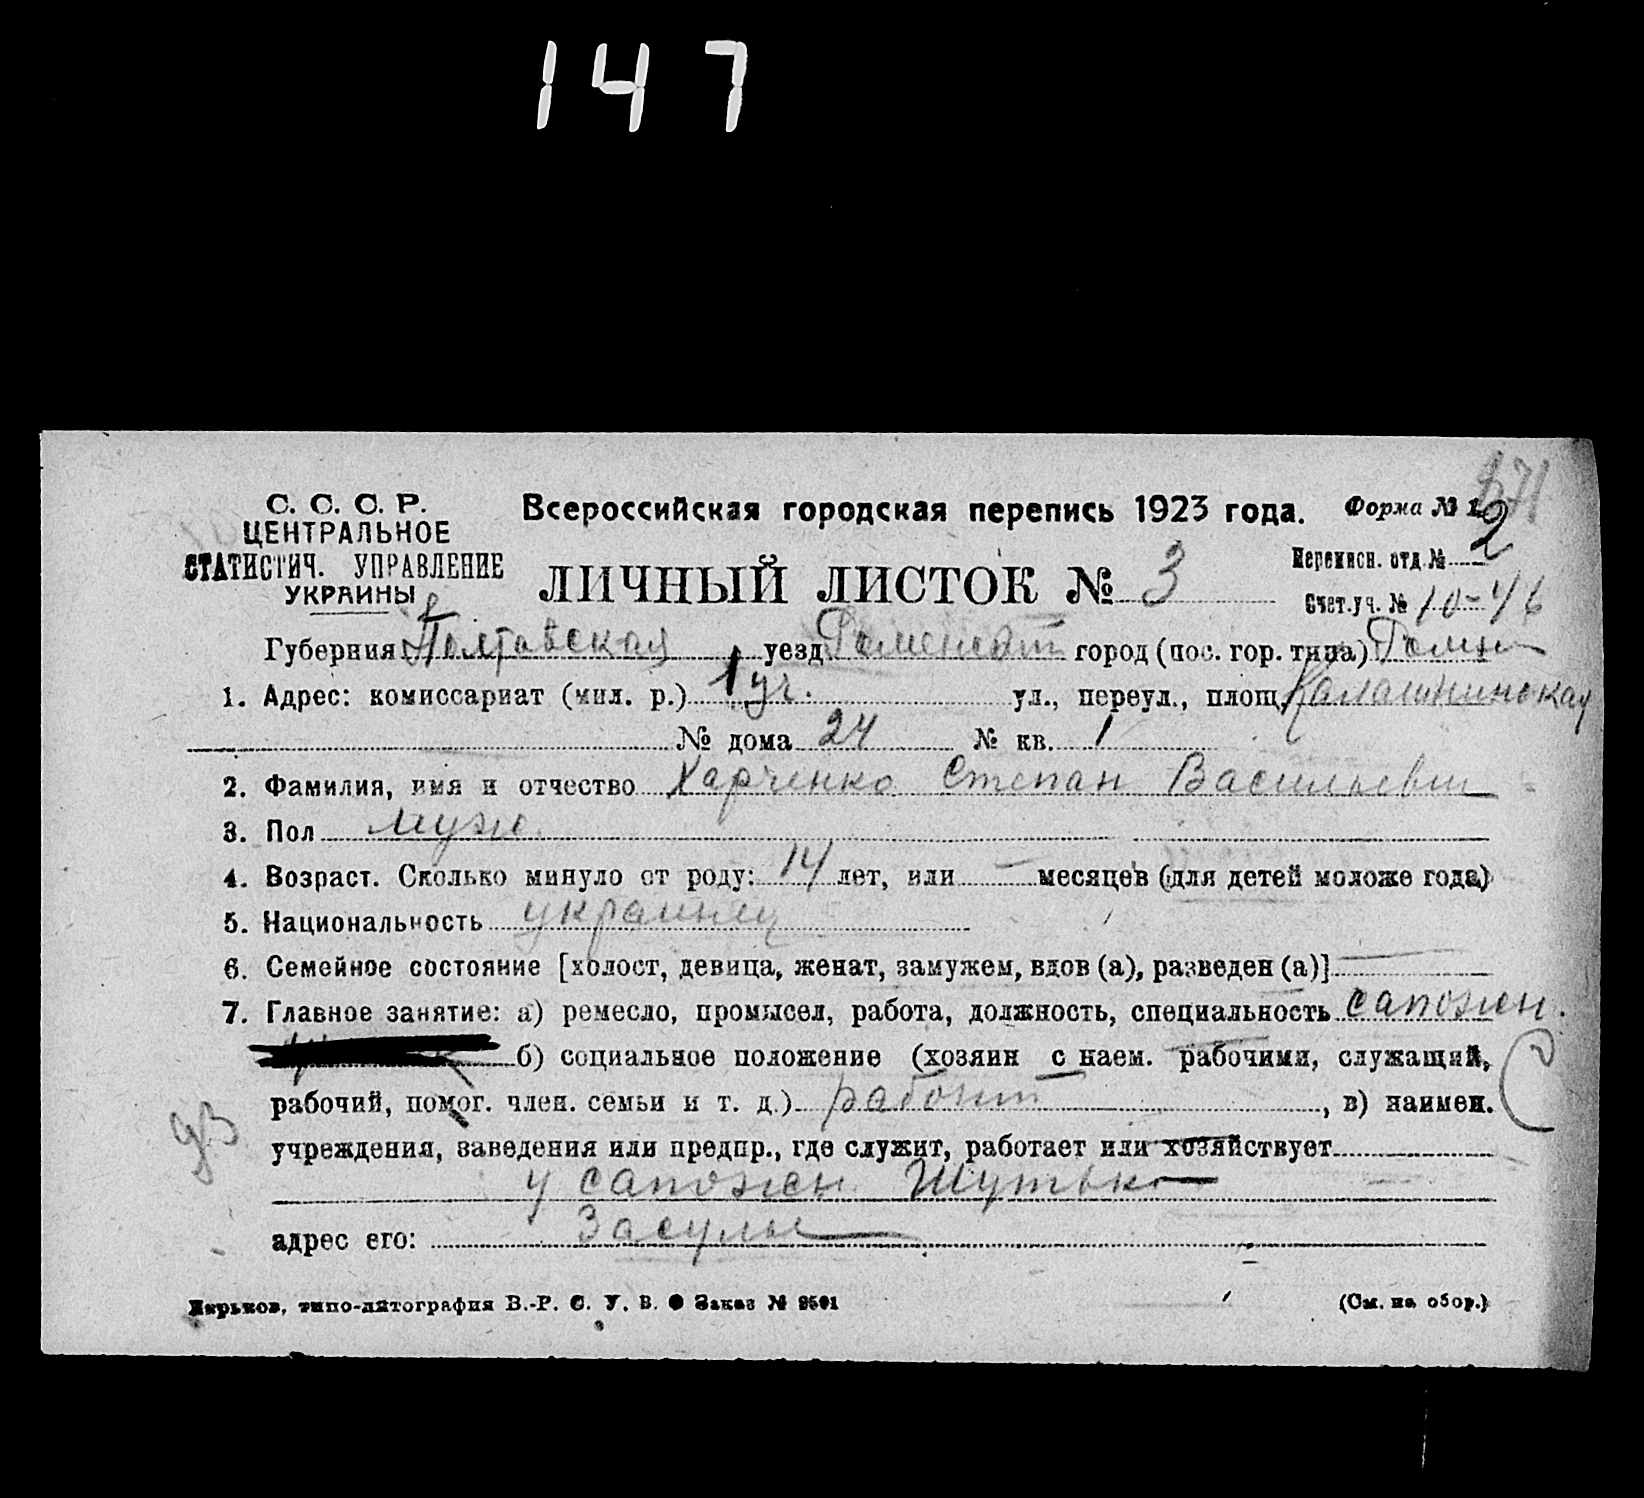 147
С. С. С. Р.
ЦЕНТРАЛЬНОЕ
СТАТИСТИЧ. УПРАВЛЕНИЕ
УКРАИНЫ
Всероссийская городская перепись 1923 года.
Форма № 1
371
ЛИЧНЫЙ ЛИСТОК № 3
Переписн. отд. № 2
Счет. уч. № 10-46
Губерния Полтавская уезд город (пос. гор. типа)
1. Адрес: комиссариат (мил. р.) 1 уч. ул., переул., площ.
№ дома 24 № кв. 1
2. Фамилия, имя и отчество Харченко Степан Васильевич
3. Пол муж.
4. Возраст. Сколько минуло от роду: 14 лет, или — месяцев (для детей моложе года)
5. Национальность украинец
6. Семейное состояние [холост, девица, женат, замужем, вдов (а), разведен (а)] —
7. Главное занятие: а) ремесло, промысел, работа, должность, специальность сапожн.
б) социальное положение (хозяин с наем. рабочими, служащий,
рабочий, помог. член. семьи и т. д.) , в) наимен.
учреждения, заведения или предпр., где служит, работает или хозяйствует
у сапожн. Шутько
адрес его: Засулье
Харьков, типо-литография В.-Р. С. У. В. Заказ № 9501
(См. на обор.)